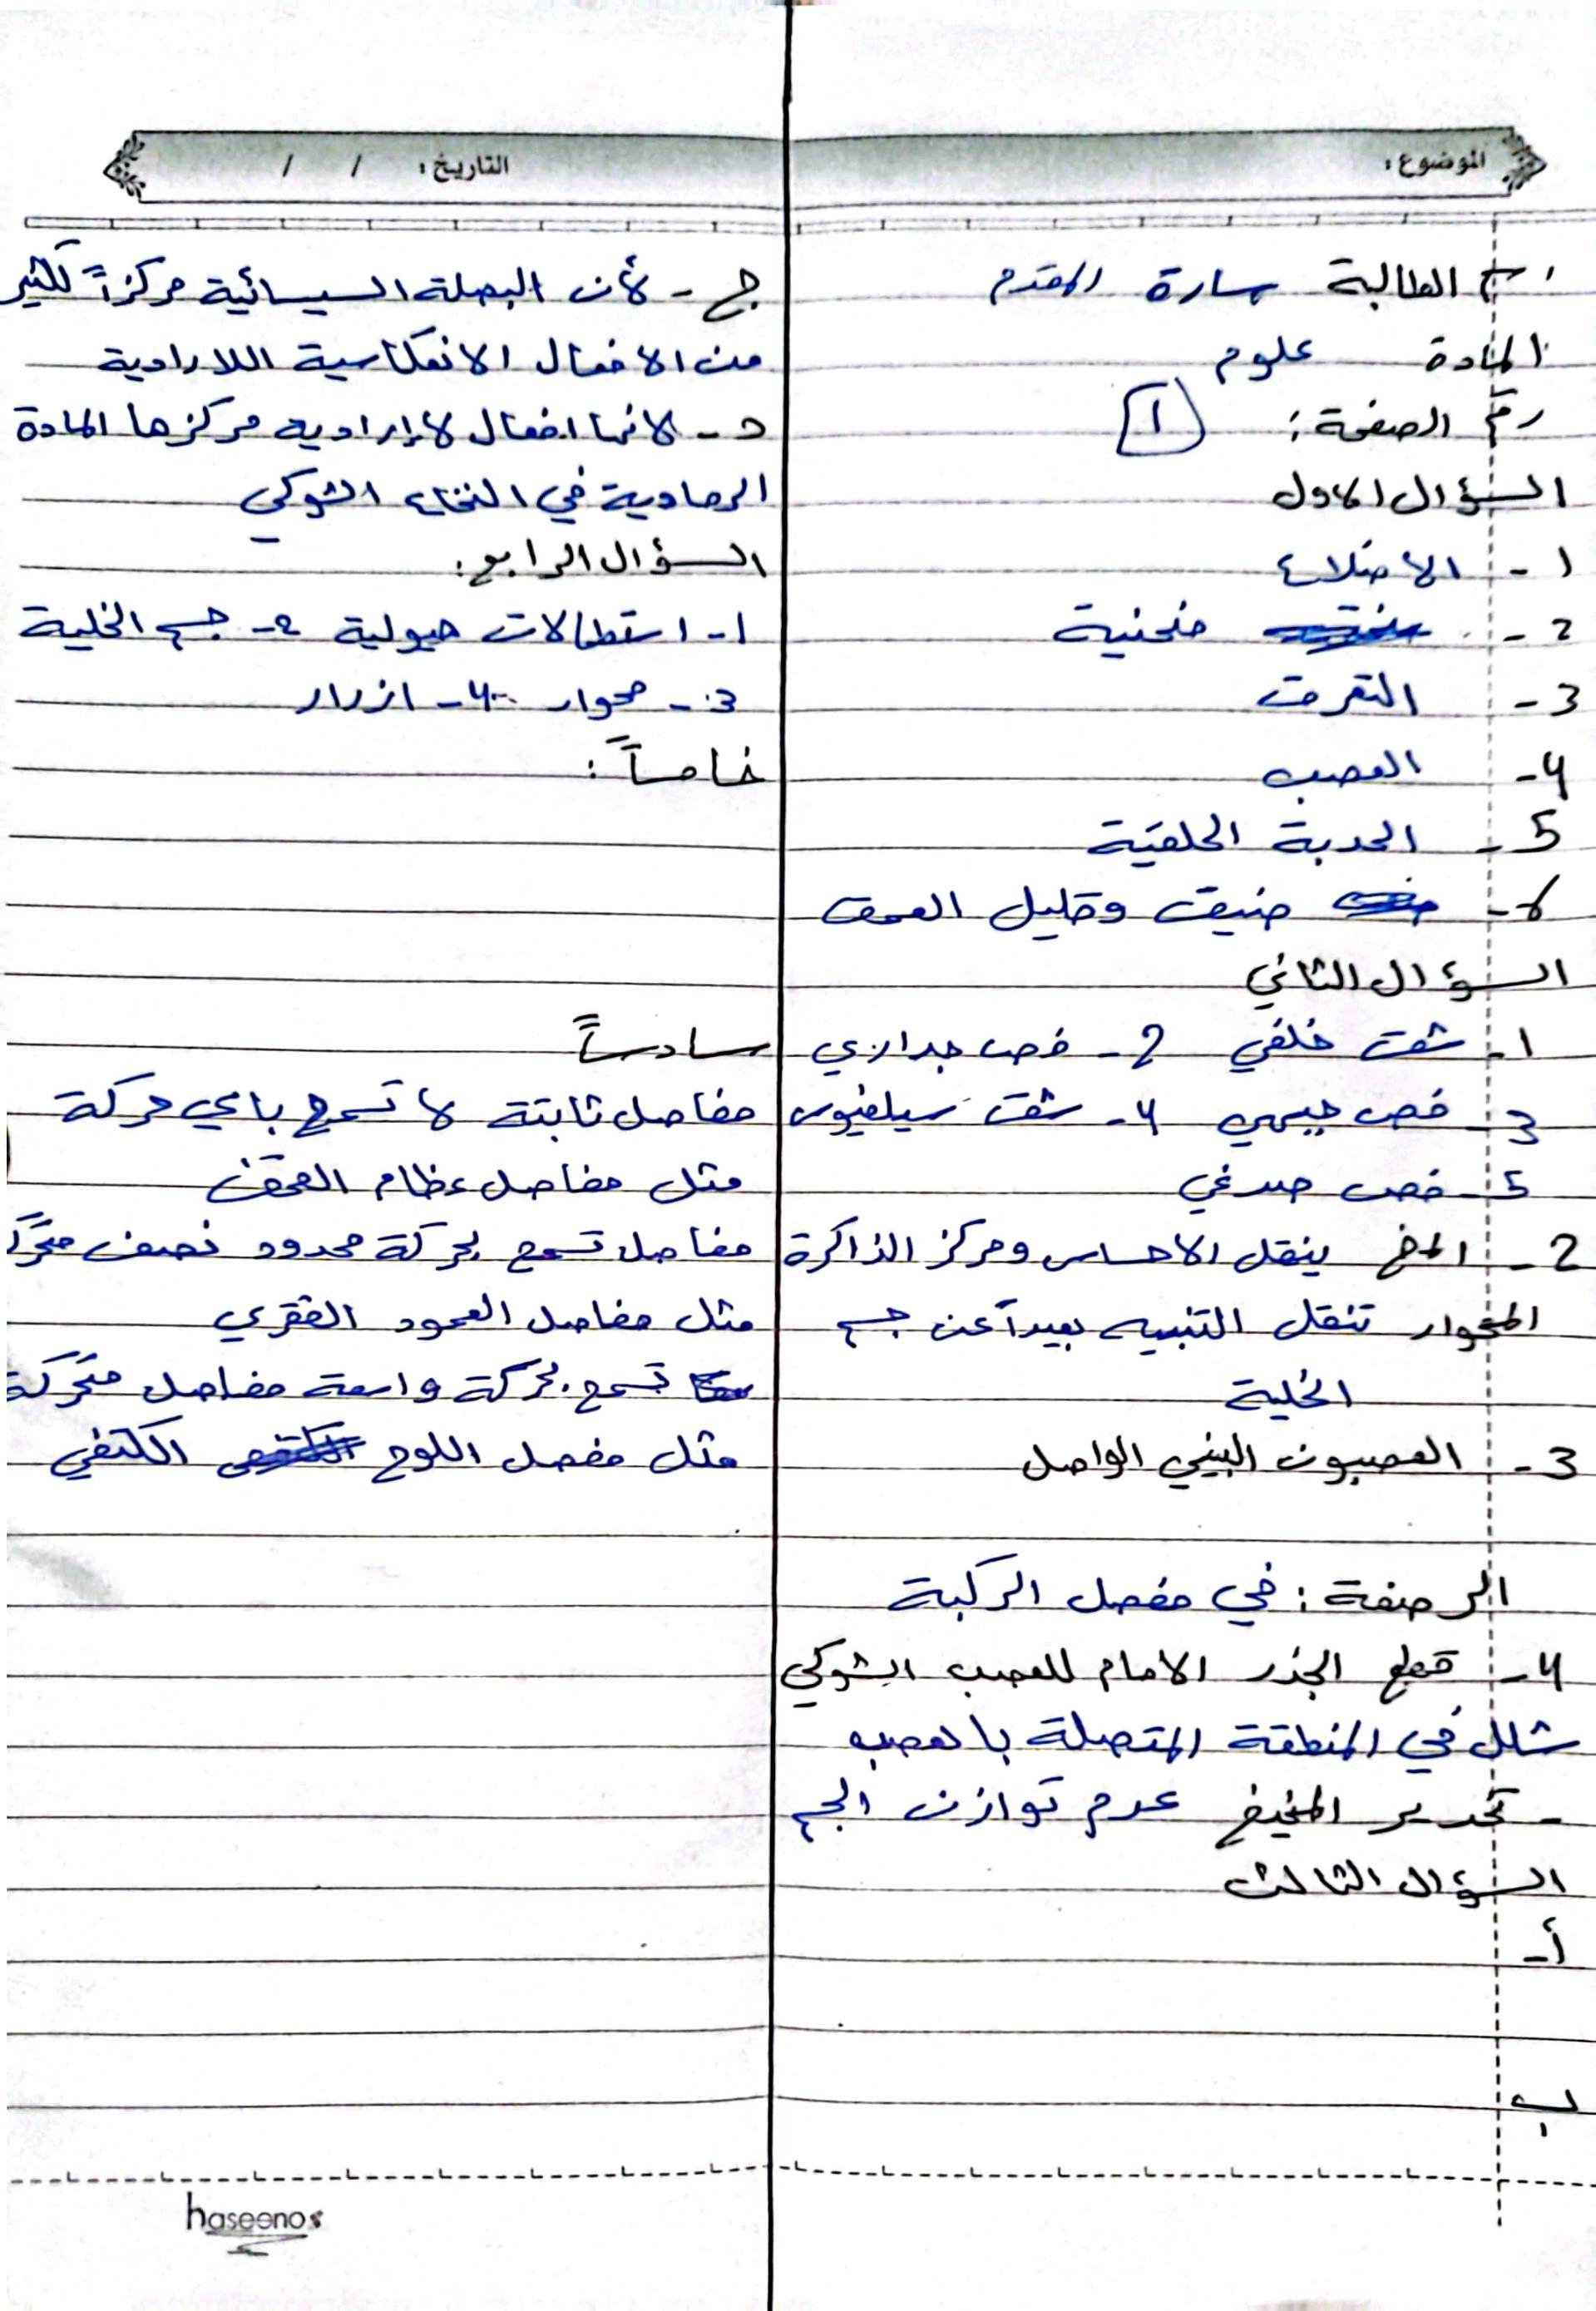 الموضوع:
التاريخ: / /
اسم الطالبة سارة المقدم
المادة علوم
رقم الصفحة: 1
السؤال الاول
1 - الاضلاع
2 - منحنية
3 - التعرق
4 - العصب
5 - الحدبة الحلقية
6 - ضيق وقليل العمق
السؤال الثاني
1 - شق خلفي 2 - فص جداري
3 - فص جبهي 4 - شق سيلفيوس
5 - فص صدغي
2 - المخ ينقل الاحساس ومركز الذاكرة
المحوار تنقل التنبيه بعيداً عن جسم
الخلية
3 - العصبون البيني الواصل
الرصفة: في مفصل الركبة
4 - قطع الجذر الامام للعصب الشوكي
شلل في المنطقة المتصلة بالعصب
- تخدير المخيخ عدم توازن الجسم
السؤال الثالث
أ -
ب
ج - لأن البصلة السيسائية مركزاً لكثير
من الافعال الانعكاسية اللارادية
د - لانها افعال لاإرادية مركزها المادة
الرمادية في النخاع الشوكي
السؤال الرابع:
1 - استطالات هيولية 2 - جسم الخلية
3 - محوار 4 - ازرار
خامساً:
سادساً
مفاصل ثابتة لا تسمح باي حركة
مثل مفاصل عظام القحف
مفاصل تسمح بحركة محدود نصف
مثل مفاصل العمود الفقري
تسمح بحركة واسعة مفاصل متحركة
مثل مفصل اللوح الكتفي
haseenos